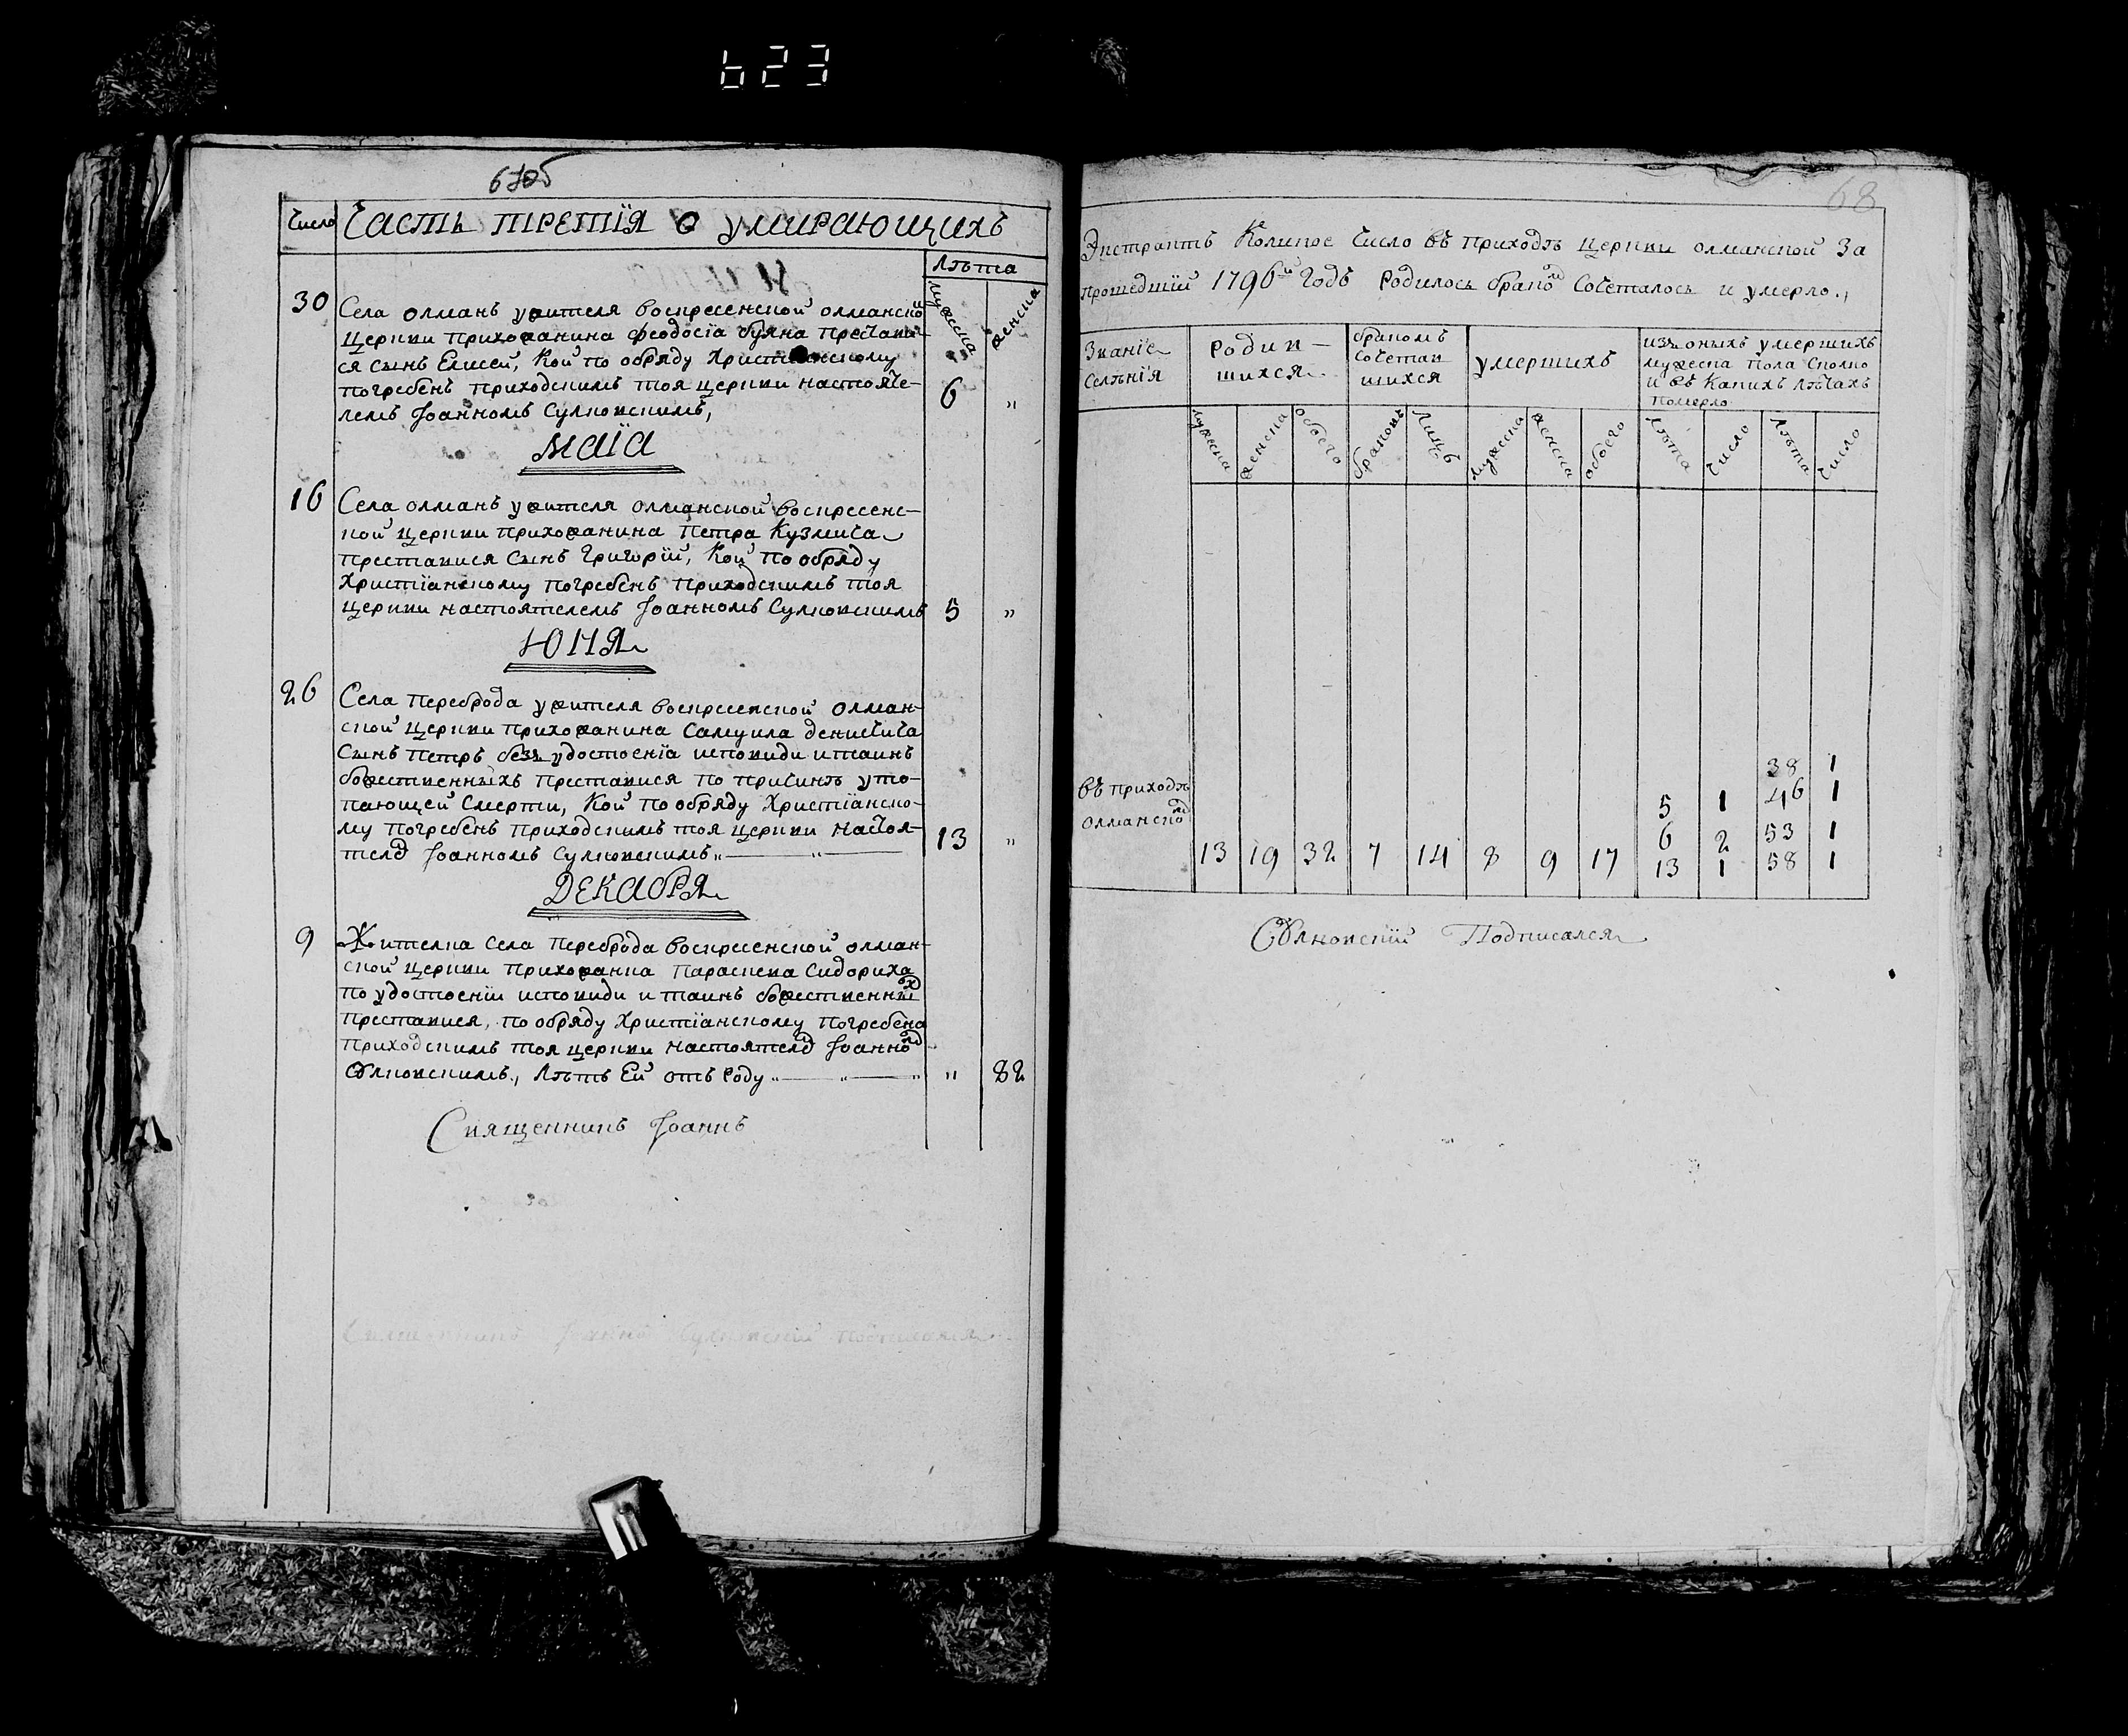 623
67об
Число Часть третїя о умирающихъ
Лѣта
мужеска женска
30 Села Олманъ жителя Воскресенской Олманско
церкви прихожанина Феодосїа Буяна престави-
ся сынъ Елисей, кой по обряду христианскому
погребенъ приходскимъ тоя церкви настояте-
лемъ Іоанномъ Сулковскимъ, 6 „
Маїа
16 Села Олманъ жителя Олманской Воскресенс-
кой церкви прихожанина Петра Кузмича
преставися сынъ Григорїй, кой по обряду
христїанскому погребенъ приходскимъ тоя
церкви настоятелемъ Іоанномъ Сулковскимъ 5 „
Юня
26 Села Переброда жителя Воскресенской Олман-
ской церкви прихожанина Самуила Денисича
сынъ Петръ безъ удостоенїа исповиди и таинъ
божественныхъ преставися по причинѣ уто-
пающей смерти, кой по обряду христїанско-
му погребенъ приходскимъ тоя церкви настоя-
телем Іоанномъ Сулковскимъ„ — „ — 13 „
Декабря
9 Жителка села Переброда Воскресенской Олман-
ской церкви прихожанка Параскева Сидориха
по удостоенїи исповиди и таинъ божественных
преставися, по обряду христїанскому погребена
приходскимъ тоя церкви настоятелем Іоанном
Сулковскимъ, лѣтъ ей отъ роду „ — „ — „ „ 82
Священникъ Іоаннъ
68
Экстрактъ коликое число въ приходѣ церкви Олманской за
прошедшїй 1796й годъ родилось браком сочеталось и умерло.,
Званїе
селѣнїя
родив-
шихся
бракомъ
сочетав
шихся
умершихъ
изъ оныхъ умершихъ
мужеска пола сколко
и въ какихъ лѣтахъ
померло
мужеска женска обоего браковъ лицъ мужеска женска обоего лѣта число лѣта число
38 1
въ приходѣ 5 1 46 1
Олманском 6 2 53 1
13 19 32 7 14 8 9 17 13 1 58 1
Сулковскїй подписался